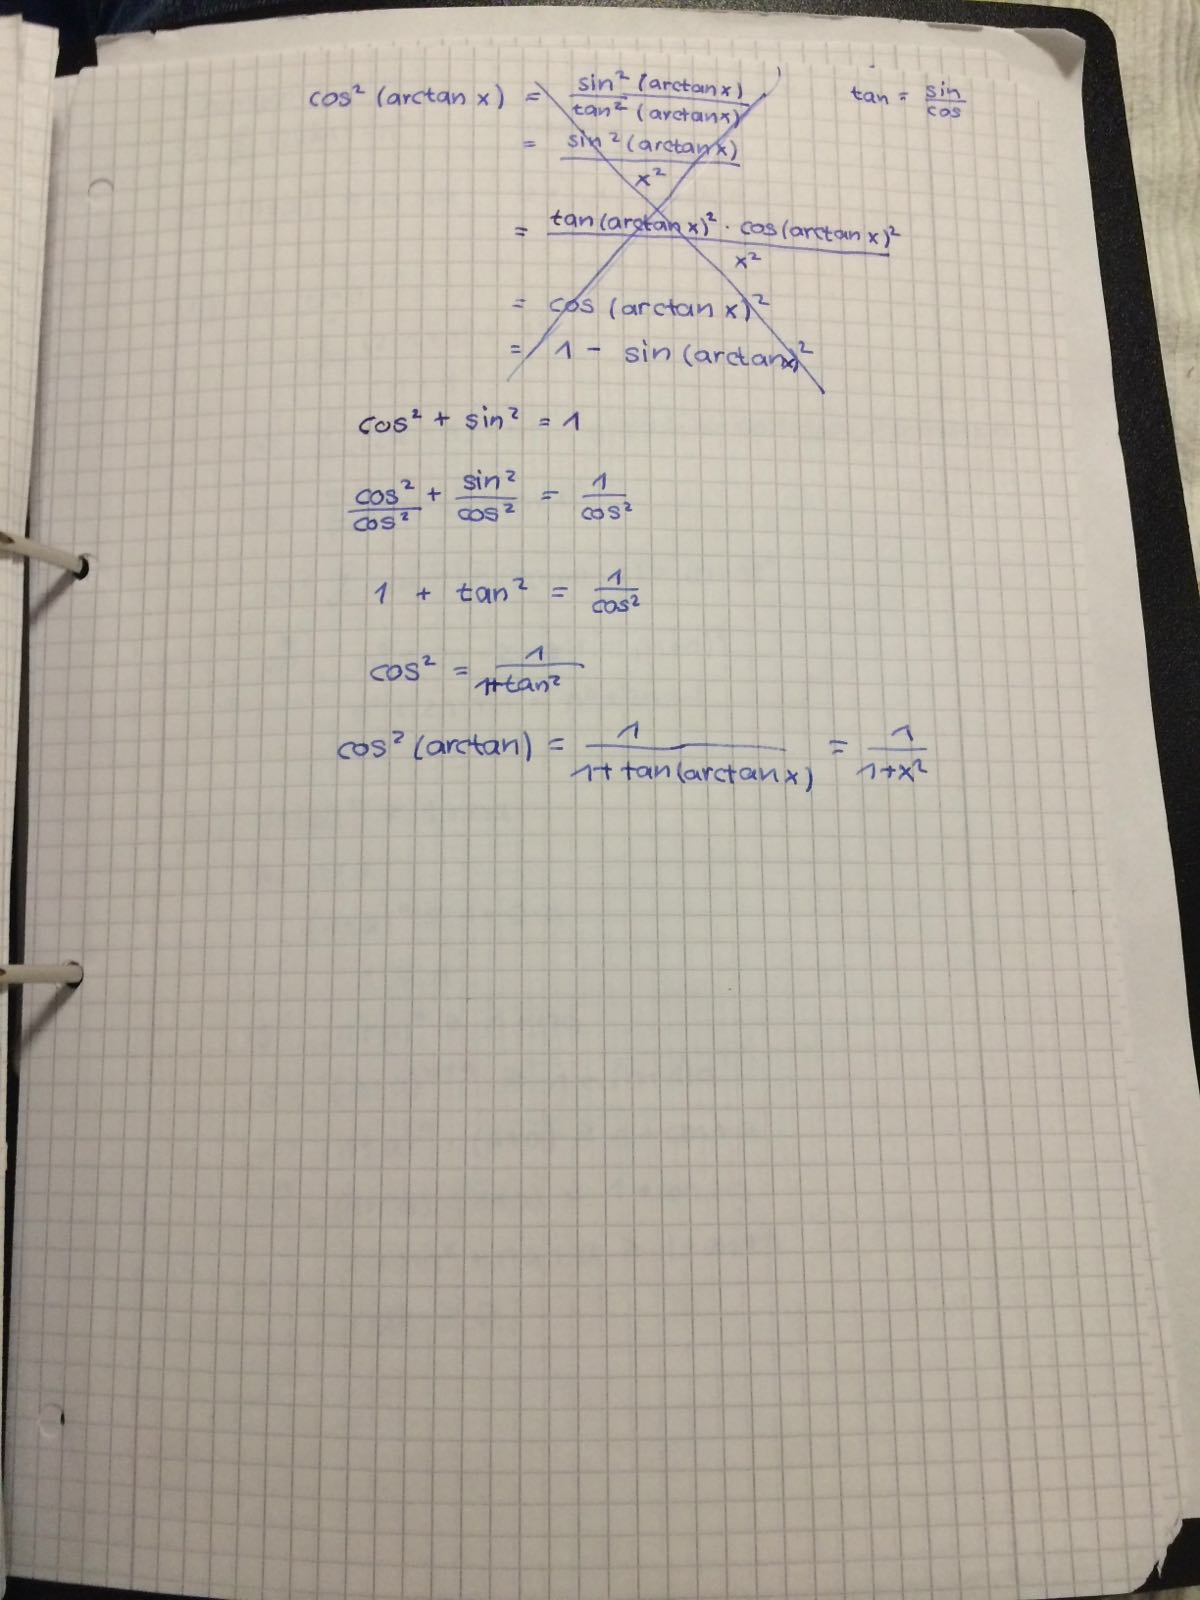 cos² (arctan x) = sin² (arctan x) / tan² (arctan x)
tan = sin / cos
= sin² (arctan x) / x²
= tan (arctan x)² · cos (arctan x)² / x²
= cos (arctan x)²
= 1 - sin (arctan x)²
cos² + sin² = 1
cos² / cos² + sin² / cos² = 1 / cos²
1 + tan² = 1 / cos²
cos² = 1 / 1+tan²
cos² (arctan) = 1 / 1+ tan(arctan x) = 1 / 1+x²